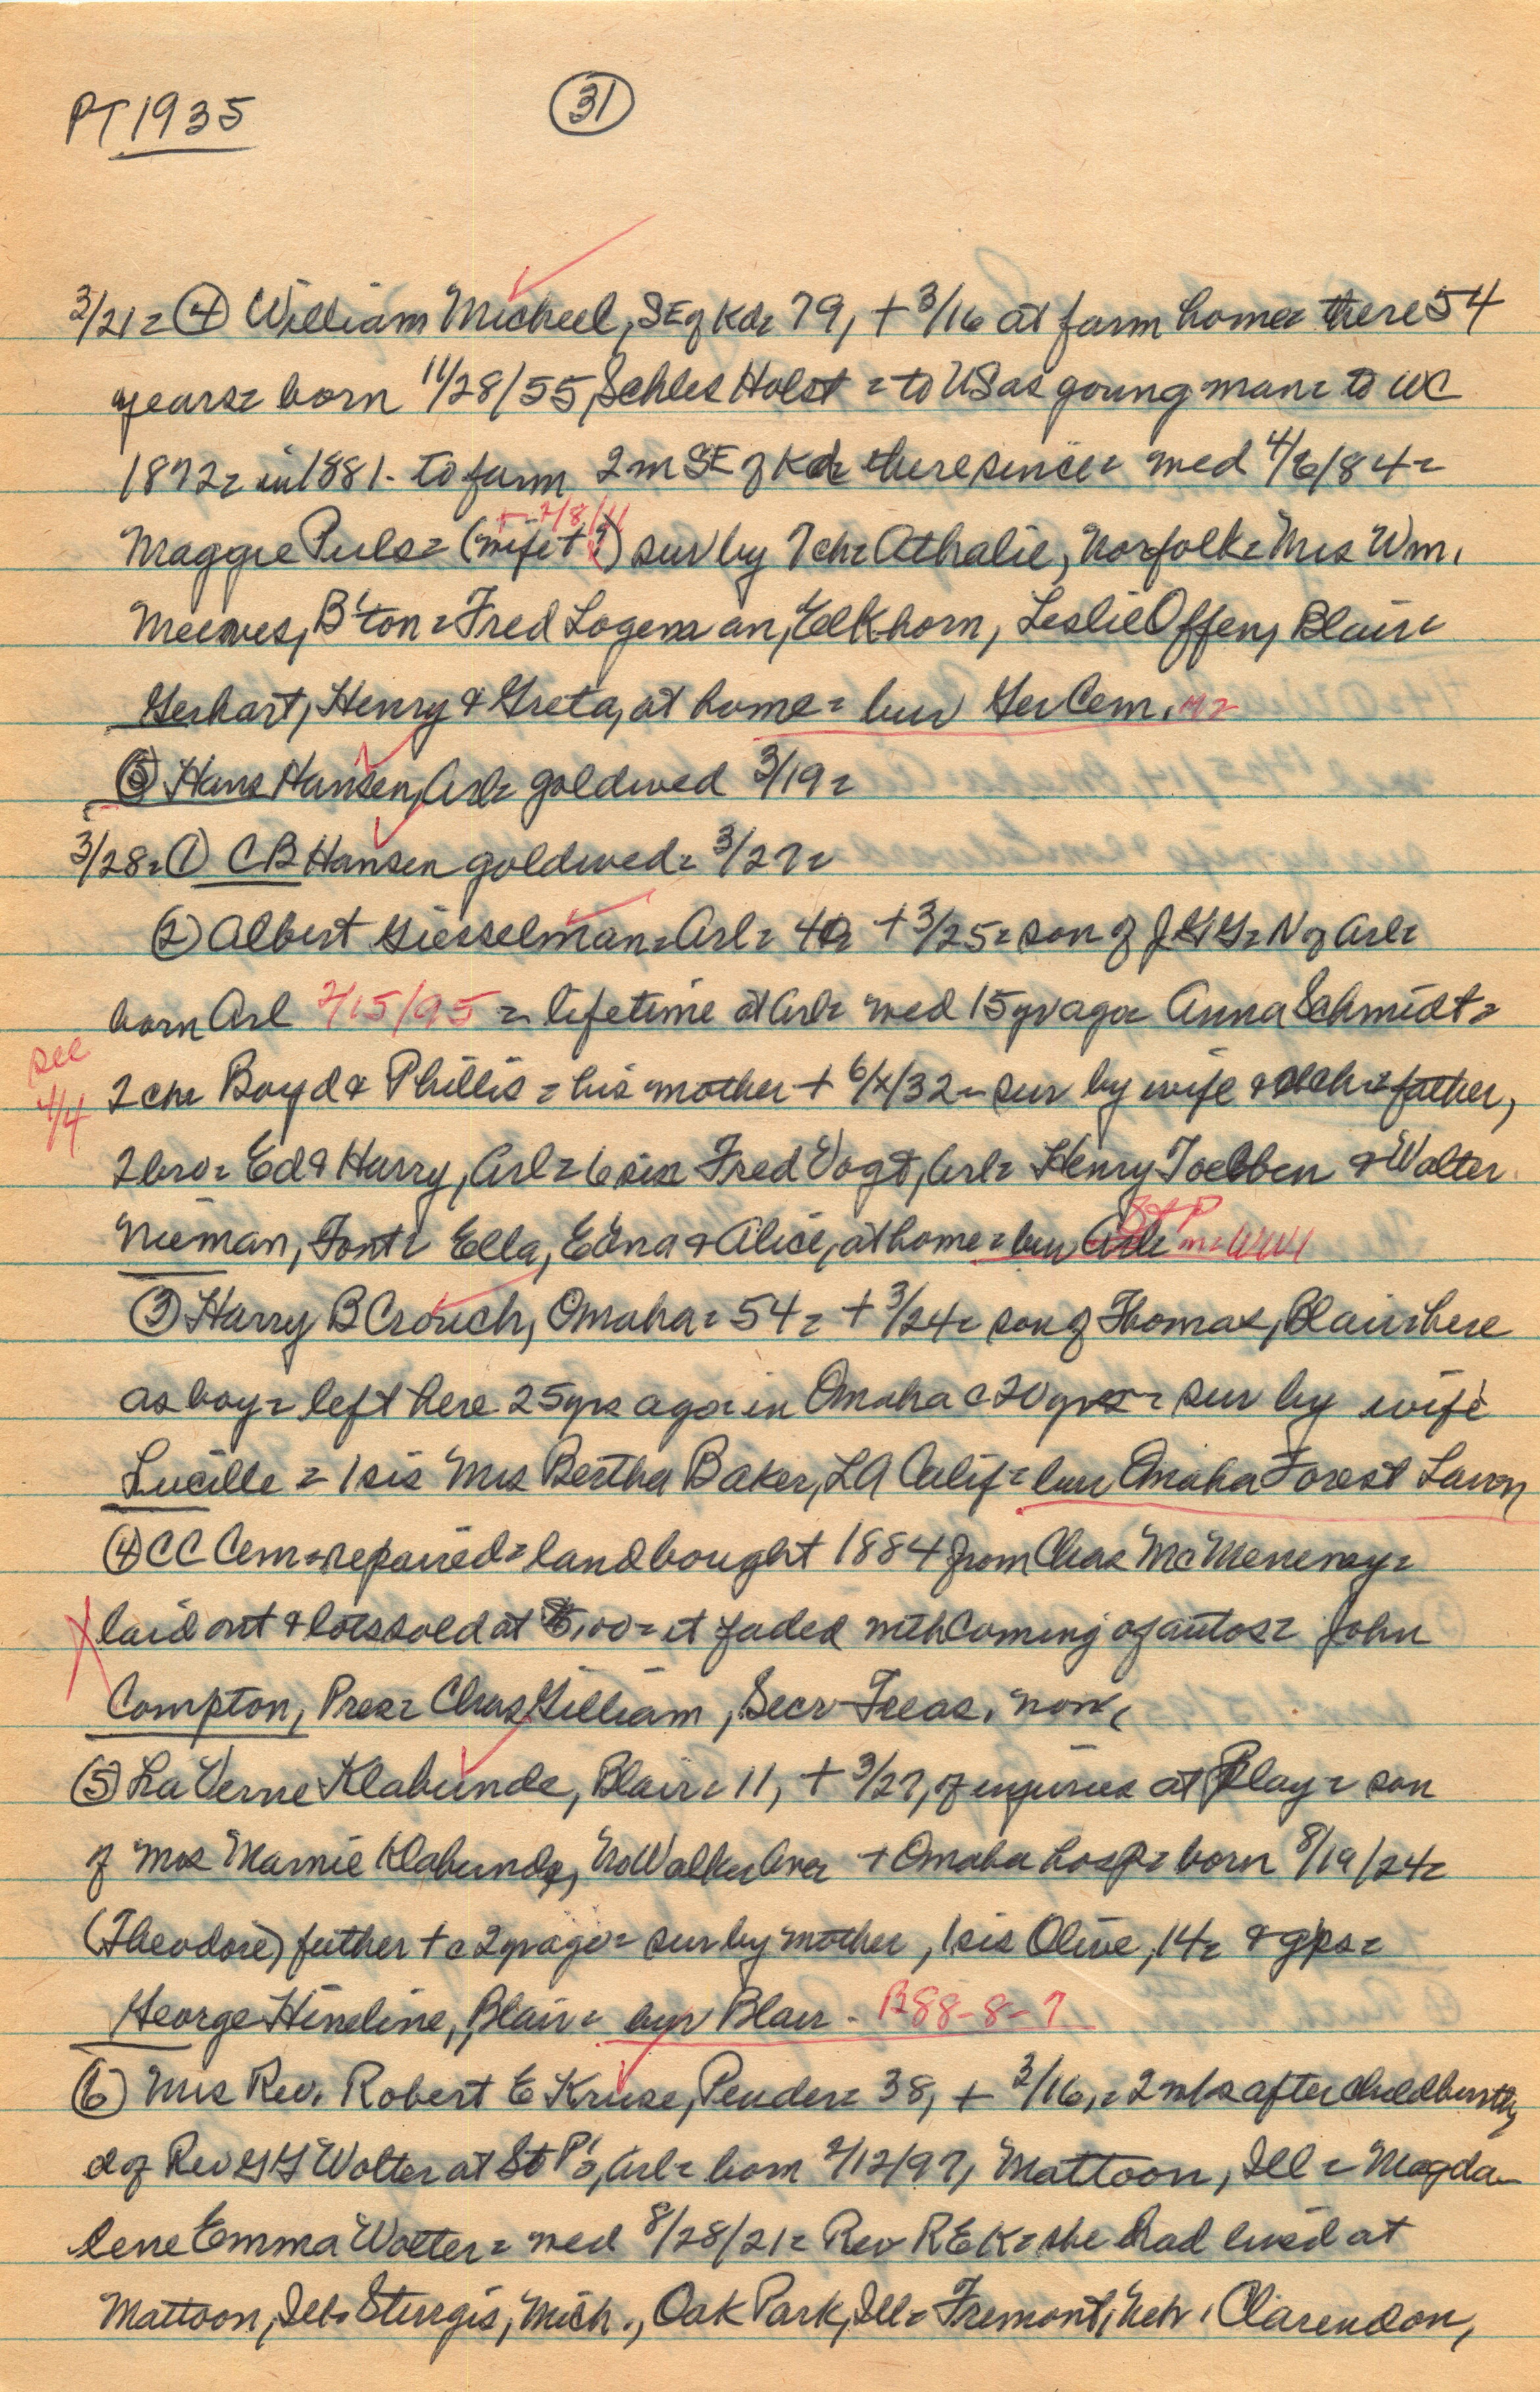 PT 1935
31
3/21= ④ William Micheel, SE of Kd= 79, + 3/16 at farm home= there 54
years= born 11/28/55, Schles Holst = to US as young man= to WC
1872= in 1881- to farm 2m SE of Kd= there since= med 4/6/84=
+ 2/8/11
Maggie Puls= (wife + ?) sur by 7 ch= Athalie, Norfolk= Mrs Wm.
Meewes, B'ton= Fred Logeman, Elkhorn, Leslie Offen, Blair=
Gerhart, Henry & Greta, at home= bur Ger Cem.
⑤ Hans Hansen, Arl= goldwed 3/19=
3/28= ① CB Hansen goldwed= 3/27=
② Albert Giesselman= Arl= 40= + 3/25= son of J G G= N of Arl=
born Arl 2/15/95 = lifetime at Arl= med 15 yr ago= Anna Schmidt=
see
4/4
2 ch= Boyd & Phillis = his mother + 6/x/32= sur by wife & ch= father,
2 bro= Ed & Harry, Arl= 6 sis= Fred Vogt, Arl= Henry Toebben & Walter
Nieman, Font= Ella, Edna & Alice, at home= bur Arl= WW1
③ Harry B Crouch, Omaha= 54= + 3/24= son of Thomas, Blair= here
as boy= left here 25 yrs ago= in Omaha c 20 yrs= sur by wife
Lucille = 1 sis Mrs Bertha Baker, LA Calif= bur Omaha Forest Lawn
④ CC Cem= repaired= land bought 1884 from Chas McMenemy=
laid out & lots sold at 5.00= it faded with coming of autos= John
Compton, Pres= Chas Gilliam, Secr-Treas. now,
⑤ LaVerne Klabunde, Blair= 11, + 3/27, of injuries at play= son
of Mrs Mamie Klabunde, No Walker Ave= + Omaha hosp= born 8/19/24=
(Theodore) father + c 2 yr ago= sur by mother, 1 sis Olive, 14= & gps=
George Hineline, Blair= bur Blair. B88-8-7
⑥ Mrs Rev. Robert E Kruse, Pender= 38, + 3/16,= 2 wks after childbirth,
d of Rev G G Wolter at St P's, Arl= born 2/12/97, Mattoon, Ill= Magda-
lene Emma Wolter= med 8/28/21= Rev R E K= she had lived at
Mattoon, Ill= Sturgis, Mich., Oak Park, Ill= Fremont, Neb. Clarendon,